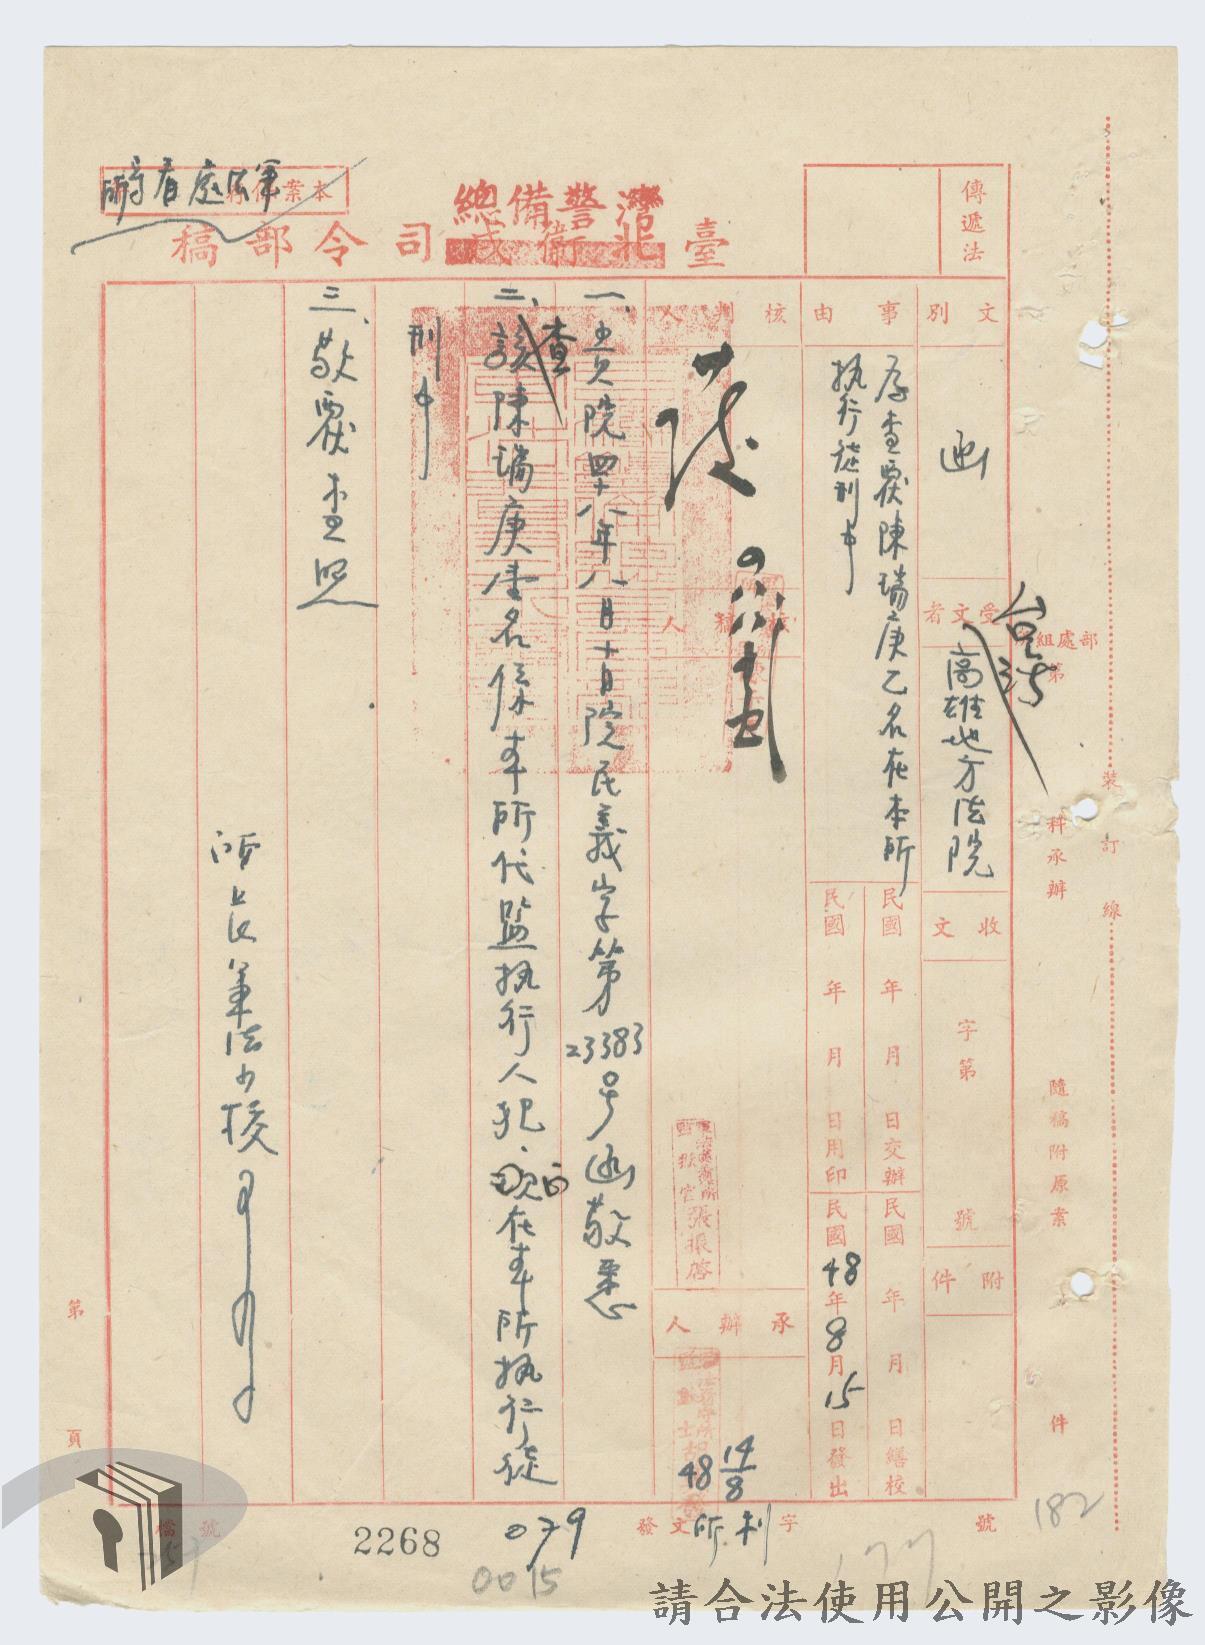 軍法處看守所
本案
灣警備總
臺北衛戍司令部稿
傳遞法
文別
函
受文者
台灣高雄地方法院
收文
字第
號
附件
事由
為查覆陳瑞庚乙名在本所
執行徒刑中
民國 年 月 日交辦
民國 年 月 日繕校
民國 年 月 日用印
民國48年8月15日發出
核判人
核稿人
監獄官張振啓
承辦人
48 14/8
一、貴院四十八年八月十日院民義字第23383号函敬悉
二、查該陳瑞庚壹名係本所代監執行人犯,現在本所執行徒
刑中
三、敬覆查照
所長軍法少校
組處部
第
科承辦
隨稿附原案
件
裝訂線
第
頁
檔號
發文
字
號
079
2268
0015
177
182
請合法使用公開之影像